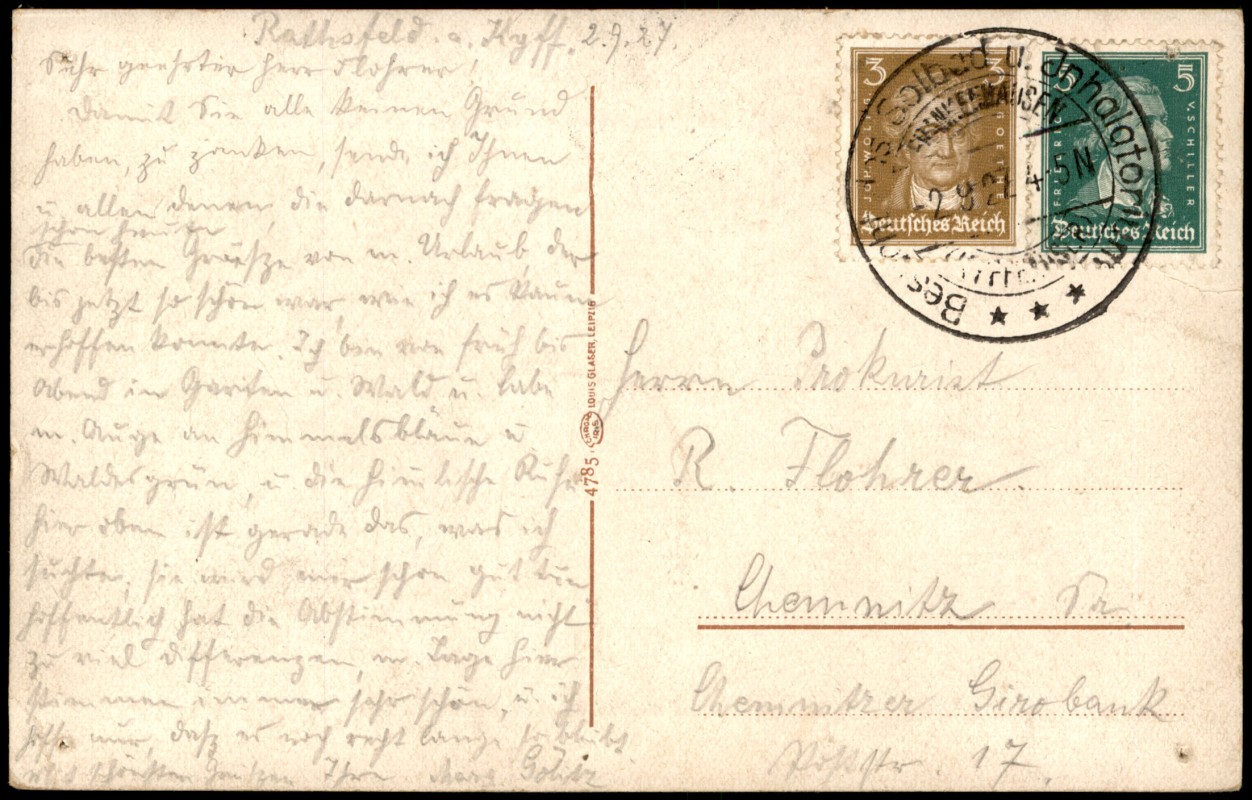 Rathsfeld a. Kyff. 2.9.27.
Sehr geehrter Herr Flohrer,
Damit Sie alle keinen Grund
haben, zu zanken, sende ich Ihnen
u. allen denen die darnach fragen
schon heute
die besten Grüsze von m. Urlaub, der
bis jetzt so schön war, wie ich es kaum
erhoffen konnte. Ich bin von früh bis
Abend im Garten u. Wald u. labe
m. Auge an Himmelsbläue u.
Waldesgrün, u. die himmlische Ruhe
hier oben ist gerade das, was ich
suchte, sie wird mir schon gut tun
hoffentlich hat die Abstimmung nicht
zu viel Differenzen, m. Tage hier
stimmen immer sehr schön, u. ich
hoffe nur, dasz es noch recht lange so bleibt
Mit schönsten Grüszen Ihre Marg. Göbitz
4785 LOUIS GLASER, LEIPZIG
3 3
JOH. WOLFG. GOETHE
Deutsches Reich
5 5
FRIEDRICH V. SCHILLER
Deutsches Reich
Solbad u. Inhalatorium
FRANKENHAUSEN
-2.9.27. 4-5N
(KYFFH.)
Herrn Prokurist
R. Flohrer.
Chemnitz Sa.
Chemnitzer Girobank
Poststr. 17.